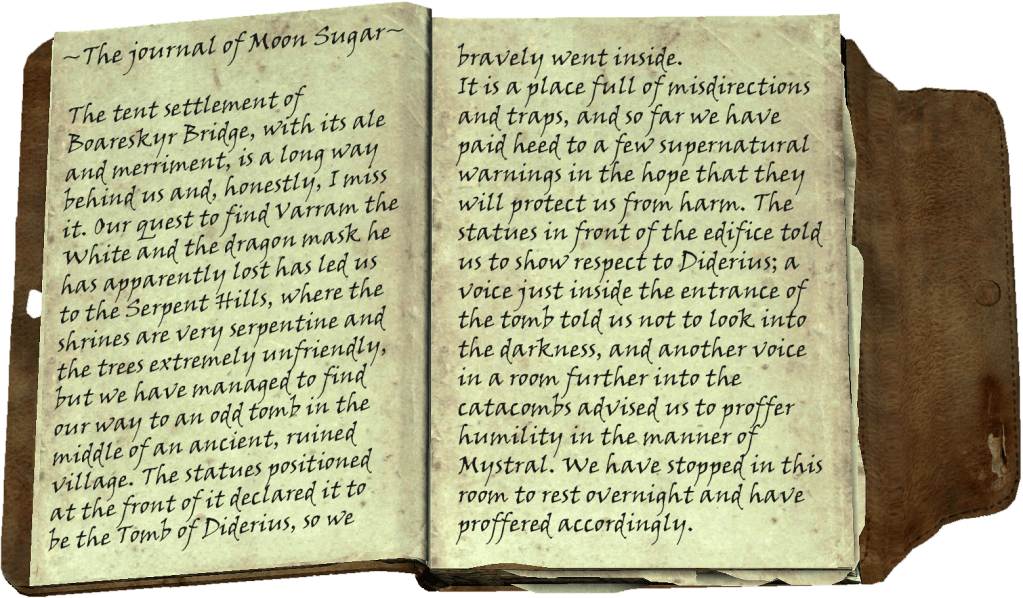 ~The journal of Moon Sugar~
The tent settlement of
Boareskyr Bridge, with its ale
and merriment, is a long way
behind us and, honestly, I miss
it. Our quest to find Varram the
White and the dragon mask he
has apparently lost has led us
to the Serpent Hills, where the
shrines are very serpentine and
the trees extremely unfriendly,
but we have managed to find
our way to an odd tomb in the
middle of an ancient, ruined
village. The statues positioned
at the front of it declared it to
be the Tomb of Diderius, so we
bravely went inside.
It is a place full of misdirections
and traps, and so far we have
paid heed to a few supernatural
warnings in the hope that they
will protect us from harm. The
statues in front of the edifice told
us to show respect to Diderius; a
voice just inside the entrance of
the tomb told us not to look into
the darkness, and another voice
in a room further into the
catacombs advised us to proffer
humility in the manner of
Mystral. We have stopped in this
room to rest overnight and have
proffered accordingly.